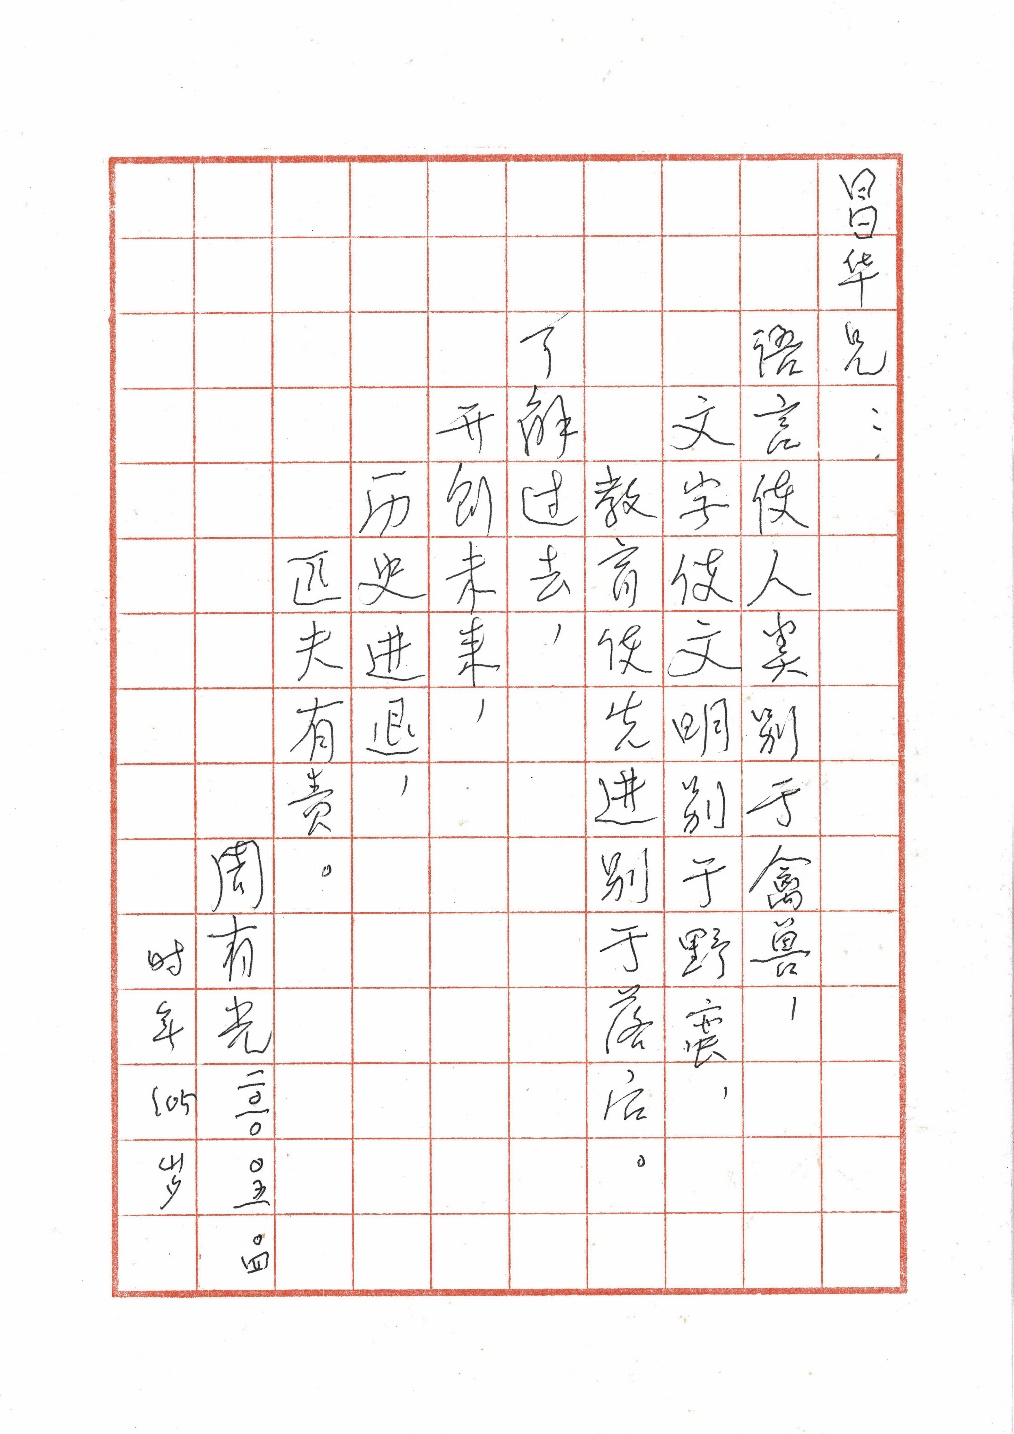 昌华兄：
语言使人类别于禽兽，
文字使文明别于野蛮，
教育使先进别于落后。
了解过去，
开创未来，
历史进退，
匹夫有责。
周有光二〇一〇〇五〇四
时年105岁